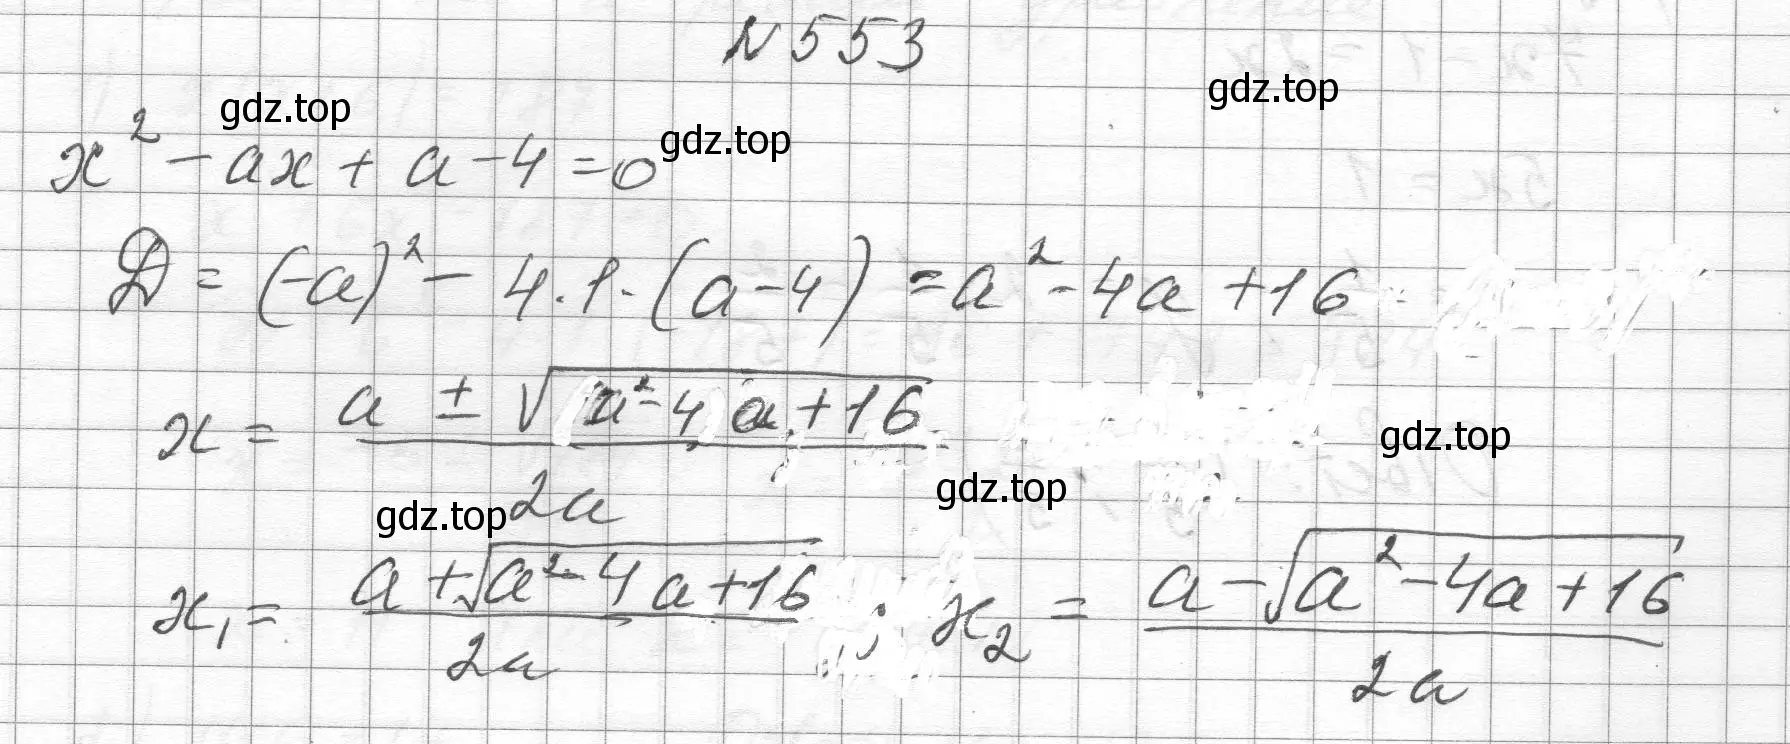 N 553
gdz.top
gdz.top
gdz.top
x² - ax + a - 4 = 0
D = (-a)² - 4 · 1 · (a - 4) = a² - 4a + 16
x = (a ± √(a² - 4a + 16)) / 2a
gdz.top
gdz.top
gdz.top
x₁ = (a + √(a² - 4a + 16)) / 2a ; x₂ = (a - √(a² - 4a + 16)) / 2a